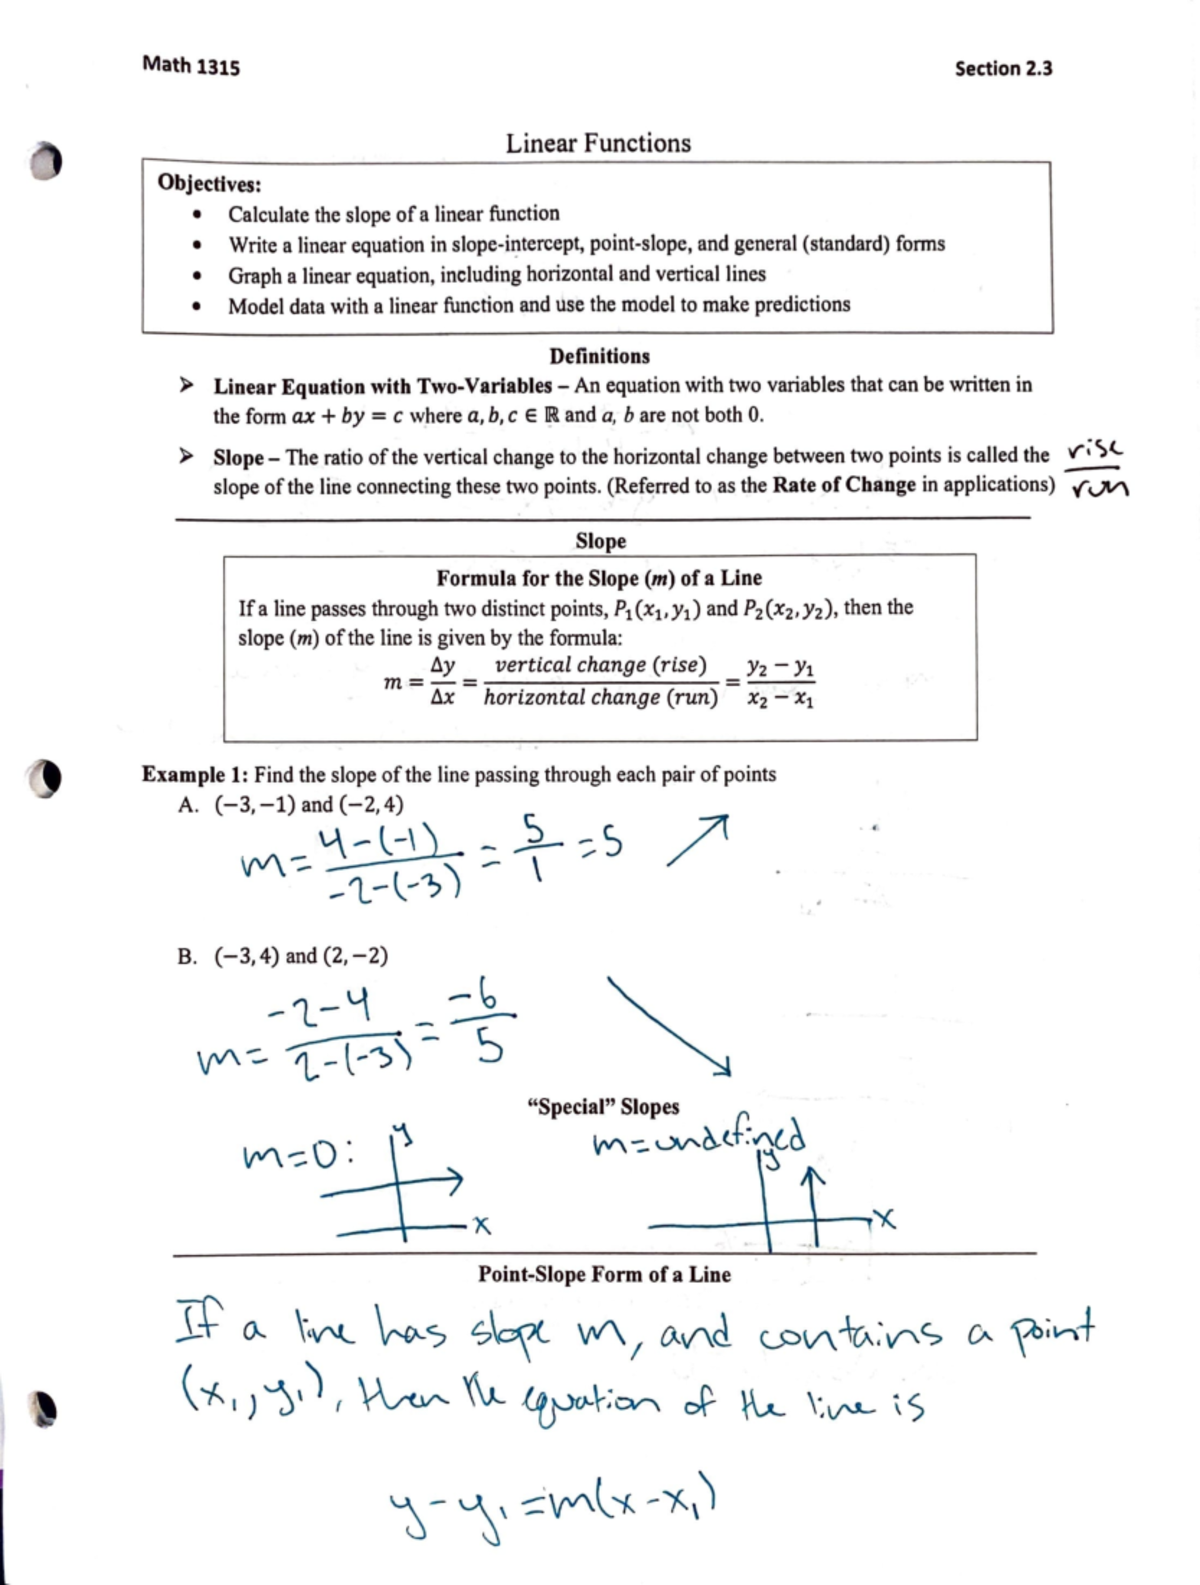 Math 1315
Section 2.3
Linear Functions
Objectives:
• Calculate the slope of a linear function
• Write a linear equation in slope-intercept, point-slope, and general (standard) forms
• Graph a linear equation, including horizontal and vertical lines
• Model data with a linear function and use the model to make predictions
Definitions
➢ Linear Equation with Two-Variables – An equation with two variables that can be written in
the form ax + by = c where a, b, c ∈ ℝ and a, b are not both 0.
➢ Slope – The ratio of the vertical change to the horizontal change between two points is called the
slope of the line connecting these two points. (Referred to as the Rate of Change in applications)
rise
run
Slope
Formula for the Slope (m) of a Line
If a line passes through two distinct points, P₁(x₁, y₁) and P₂(x₂, y₂), then the
slope (m) of the line is given by the formula:
m = Δy/Δx = vertical change (rise)/horizontal change (run) = y₂ − y₁/x₂ − x₁
Example 1: Find the slope of the line passing through each pair of points
A. (−3, −1) and (−2, 4)
m = 4-(-1)/-2-(-3) = 5/1 = 5
B. (−3, 4) and (2, −2)
m = -2-4/2-(-3) = -6/5
“Special” Slopes
m=0:
y
x
m=undefined
y
x
Point-Slope Form of a Line
If a line has slope m, and contains a point
(x₁, y₁), then the equation of the line is
y-y₁=m(x-x₁)